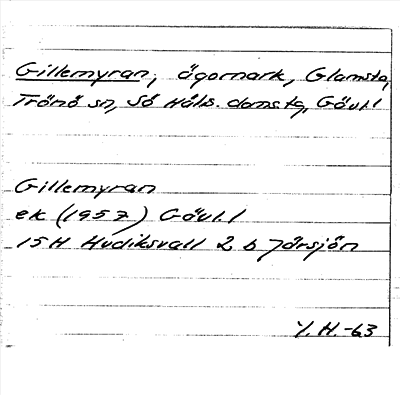 Gillemyran, ägomark, Glamsta,
Trönö sn, Sö Häls. domstg, Gävl.l
Gillemyran
ek (1957) Gävl.l
15H Hudiksvall 2 b Jörsjön
Y.H.-63